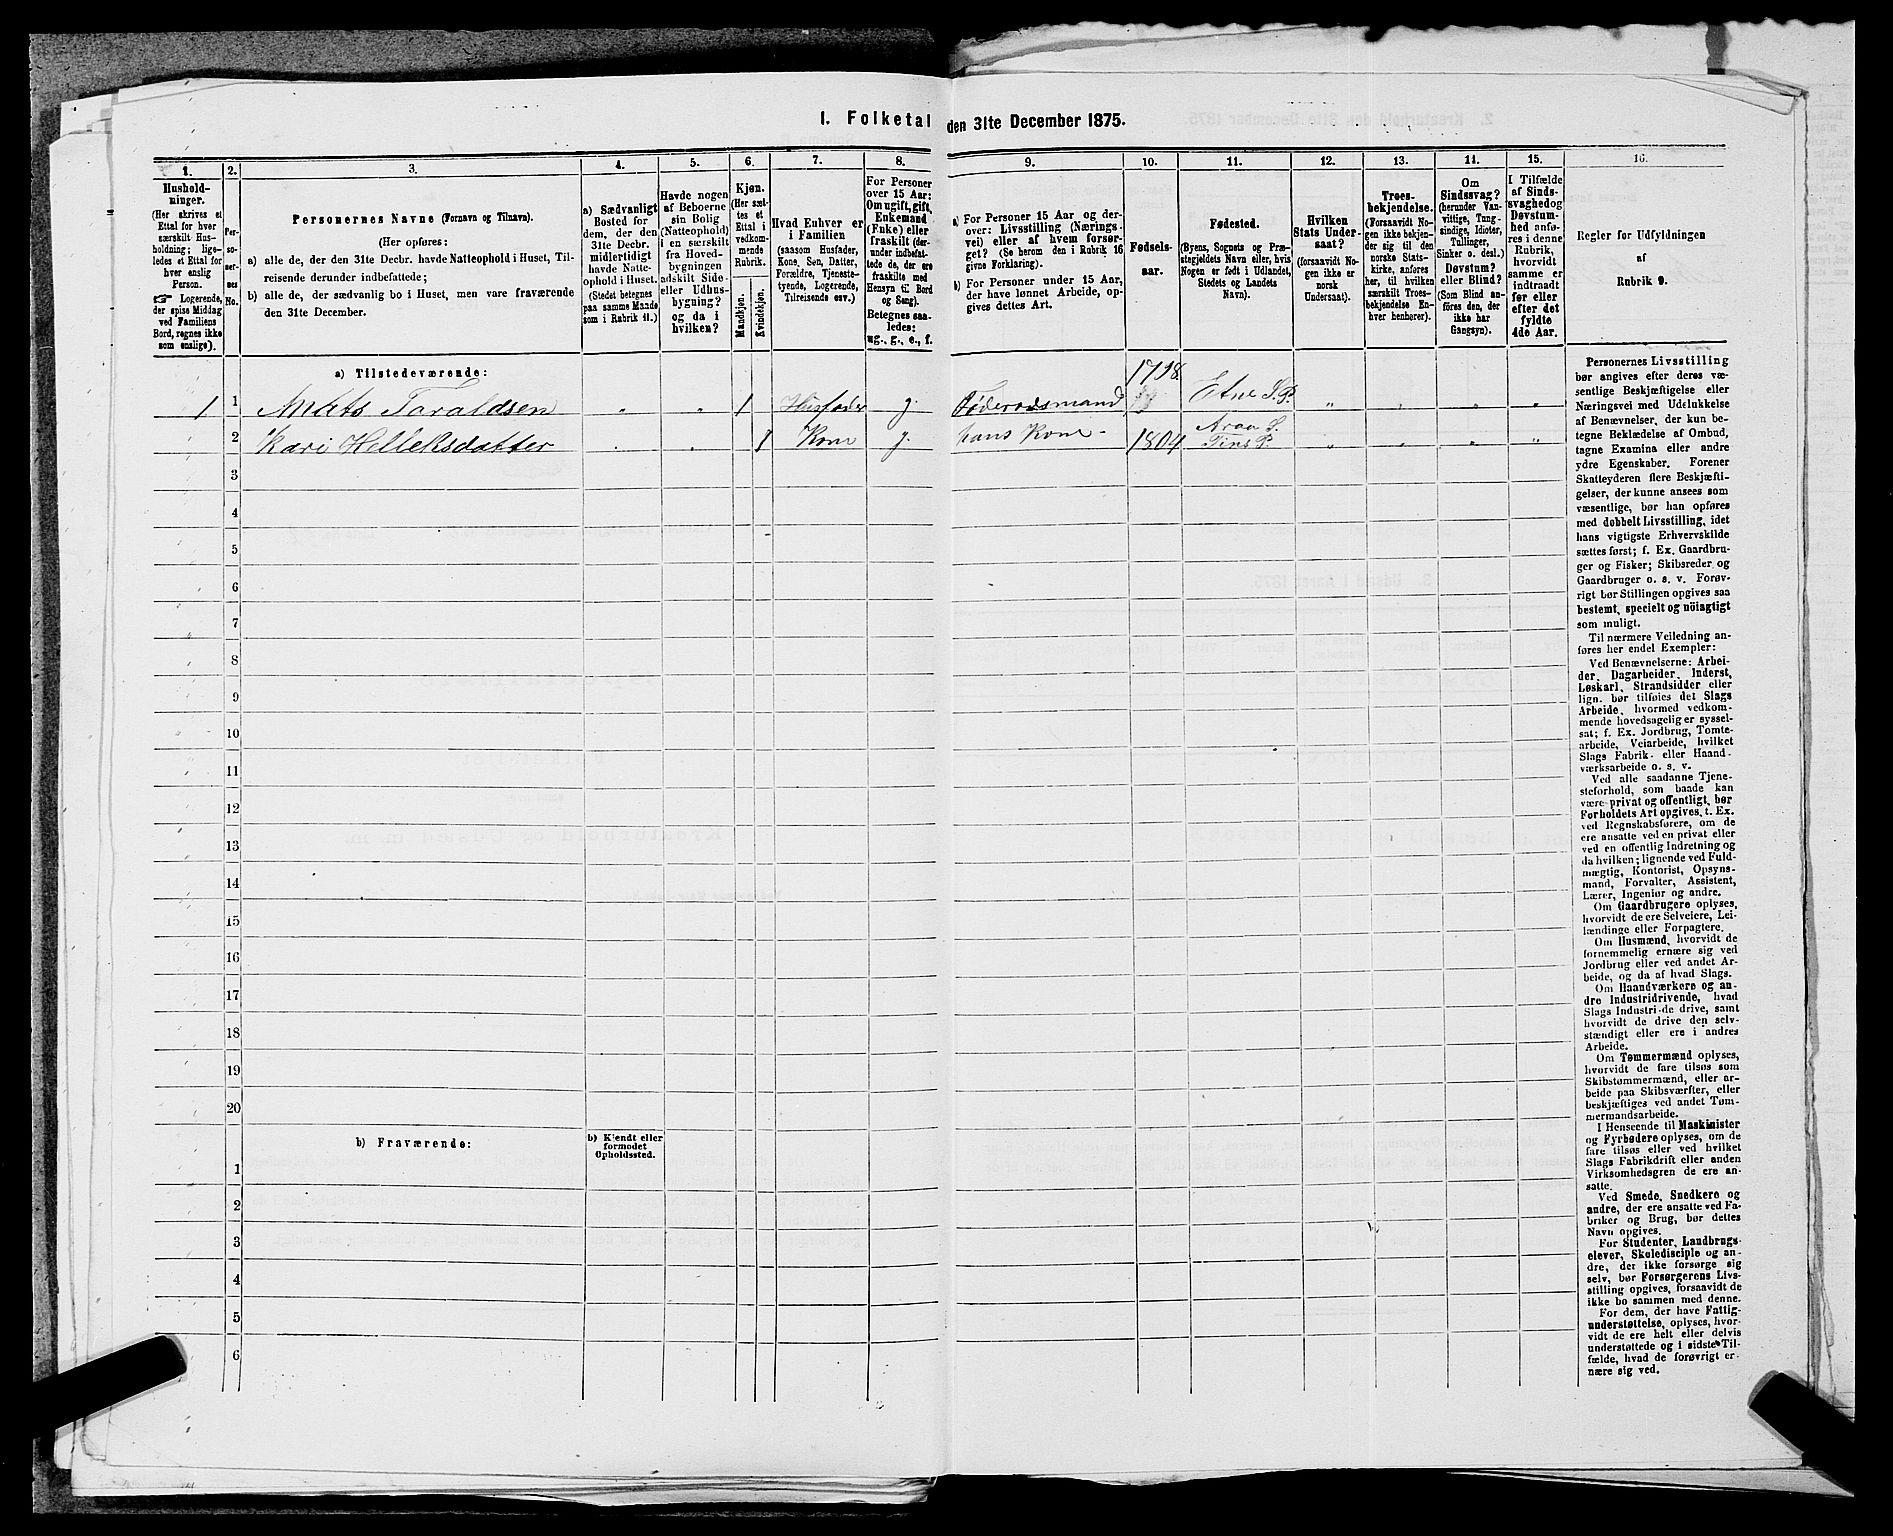 1. Folketal den 31te December 1875.
1. 2. 3. 4. 5. 6. 7. 8. 9. 10. 11. 12. 13. 14. 15. 16.
Hushold-
ninger.
(Her skrives et
Ettal for hver
særskilt Hus-
holdning; lige-
ledes et Ettal for
hver enslig
Person.
☞ Logerende,
der spise Middag
ved Familiens
Bord, regnes ikke
som enslige).
Per-
so-
ner-
nes
No.
Personernes Navne (Fornavn og Tilnavn).
(Her opføres:
a) alle de, der den 31te Decbr. havde Natteophold i Huset, Til-
reisende derunder indbefattede;
b) alle de, der sædvanlig bo i Huset, men vare fraværende
den 31te December.
a) Sædvanligt
Bosted for
dem, der den
31te Decbr.
midlertidigt
havde Natte-
ophold i Huset.
(Stedet betegnes
paa samme Maade
som i Rubrik 11.)
Havde nogen
af Beboerne
sin Bolig
(Natteophold)
i en særskilt
fra Hoved-
bygningen
adskilt Side-
eller Udhus-
bygning?
og da i
hvilken?
Kjøn.
(Her sæt-
tes et
Ettal i
vedkom-
mende
Rubrik.
Mandkjøn.
Kvindekjøn.
Hvad Enhver er
i Familien
(saasom Husfader,
Kone, Søn, Datter,
Forældre, Tjeneste-
tyende, Logerende,
Tilreisende osv.)
For Personer
over 15 Aar:
Om ugift, gift,
Enkemand
(Enke) eller
fraskilt (der-
under indbefat-
tede de, der ere
fraskilte med
Hensyn til Bord
og Seng).
Betegnes saa-
ledes:
ug., g., e., f.
a) For Personer 15 Aar og der-
over: Livsstilling (Nærings-
vei) eller af hvem forsør-
get? (Se herom den i Rubrik 16
givne Forklaring).
b) For Personer under 15 Aar,
der have lønnet Arbeide, op-
gives dettes Art.
Fødsels-
aar.
Fødested.
(Byens, Sognets og Præ-
stegjeldets Navn eller, hvis
Nogen er født i Udlandet,
Stedets og Landets
Navn).
Hvilken
Stats Under-
saat?
(forsaavidt No-
gen ikke er
norsk
Undersaat).
Troes-
bekjendelse.
(Forsaavidt No-
gen ikke bekjen-
der sig til den
norske Stats-
kirke, anføres
her, til hvilken
særskilt Troes-
bekjendelse En-
hver henhører).
Om
Sindssvag?
(herunder Van-
vittige, Tung-
sindige, Idioter,
Tullinger,
Sinker o. desl.)
Døvstum?
eller Blind?
(Som Blind an-
føres den, der
ikke har
Gangsyn).
I Tilfælde
af Sinds-
svaghed og
Døvstum-
hed anfø-
res i denne
Rubrik,
hvorvidt
samme er
indtraadt
før eller
efter det
fyldte
4de Aar.
Regler for Udfyldningen
af
Rubrik 9.
a) Tilstedeværende:
1798.
1 1 Mats Taraldsen „ „ 1 Husfader g. Føderaadsmand Etne S.P. „ „ „ „
Araa S.
2 Kari Helleksdatter „ „ 1 Kone g. hans Kone - 1804 Tins P. „ „ „ „
3
4
5
6
7
8
9
10
11
12
13
14
15
16
17
18
19
20
b) Fraværende:
b) Kjendt eller
formodet
Opholdssted.
1
2
3
4
5
6
Personernes Livsstilling
bør angives efter deres væ-
sentlige Beskjæftigelse eller
Næringsvei med Udelukkelse
af Benævnelser, der kun be-
tegne Beklædelse af Ombud,
tagne Examina eller andre
ydre Egenskaber. Forener
Skatteyderen flere Beskjæfti-
gelser, der kunne ansees som
væsentlige, bør han opføres
med dobbelt Livsstilling, idet
hans vigtigste Erhvervskilde
sættes først; f. Ex. Gaardbru-
ger og Fisker; Skibsreder og
Gaardbruger o. s. v. Forøv-
rigt bør Stillingen opgives saa
bestemt, specielt og nöiagtigt
som muligt.
Til nærmere Veiledning an-
føres her endel Exempler:
Ved Benævnelserne: Arbei-
der, Dagarbeider, Inderst,
Løskarl, Strandsidder eller
lign. bør tilføies det Slags
Arbeide, hvormed vedkom-
mende hovedsagelig er syssel-
sat; f. Ex. Jordbrug, Tomte-
arbeide, Veiarbeide, hvilket
Slags Fabrik- eller Haand-
værksarbeide o. s. v.
Ved alle saadanne Tjene-
steforhold, som baade kan
være privat og offentligt, bør
Forholdets Art opgives, t. Ex.
ved Regnskabsførere, om de
ere ansatte ved en privat eller
ved en offentlig Indretning og
da hvilken; lignende ved Fuld-
mægtig, Kontorist, Opsyns-
mand, Forvalter, Assistent,
Lærer, Ingeniør og andre.
Om Gaardbrugere oplyses,
hvorvidt de ere Selveiere, Lei-
lændinge eller Forpagtere.
Om Husmænd, hvorvidt de
fornemmelig ernære sig ved
Jordbrug eller ved andet Ar-
beide, og da af hvad Slags.
Om Haandværkere og an-
dre Industridrivende, hvad
Slags Industri de drive, samt
hvorvidt de drive den selv-
stændigt eller ere i andres
Arbeide.
Om Tømmermænd oplyses,
hvorvidt de fare tilsøs som
Skibstømmermænd, eller ar-
beide paa Skibsværfter, eller
beskjæftiges ved andet Tøm-
mermandsarbeide.
I Henseende til Maskinister
og Fyrbødere oplyses, om de
fare tilsøs eller ved hvilket
Slags Fabrikdrift eller anden
Virksomhedsgren de ere an-
satte.
Ved Smede, Snedkere og
andre, der ere ansatte ved Fa-
briker og Brug, bør dettes
Navn opgives.
For Studenter, Landbrugs-
elever, Skoledisciple og an-
dre, der ikke forsørge sig
selv, bør Forsørgerens Livs-
stilling opgives, forsaavidt de
ikke bo sammen med denne.
For dem, der have Fattig-
understøttelse, oplyses, hvor-
vidt de ere helt eller delvis
understøttede og i sidste Til-
fælde, hvad de forøvrigt er-
nære sig ved.